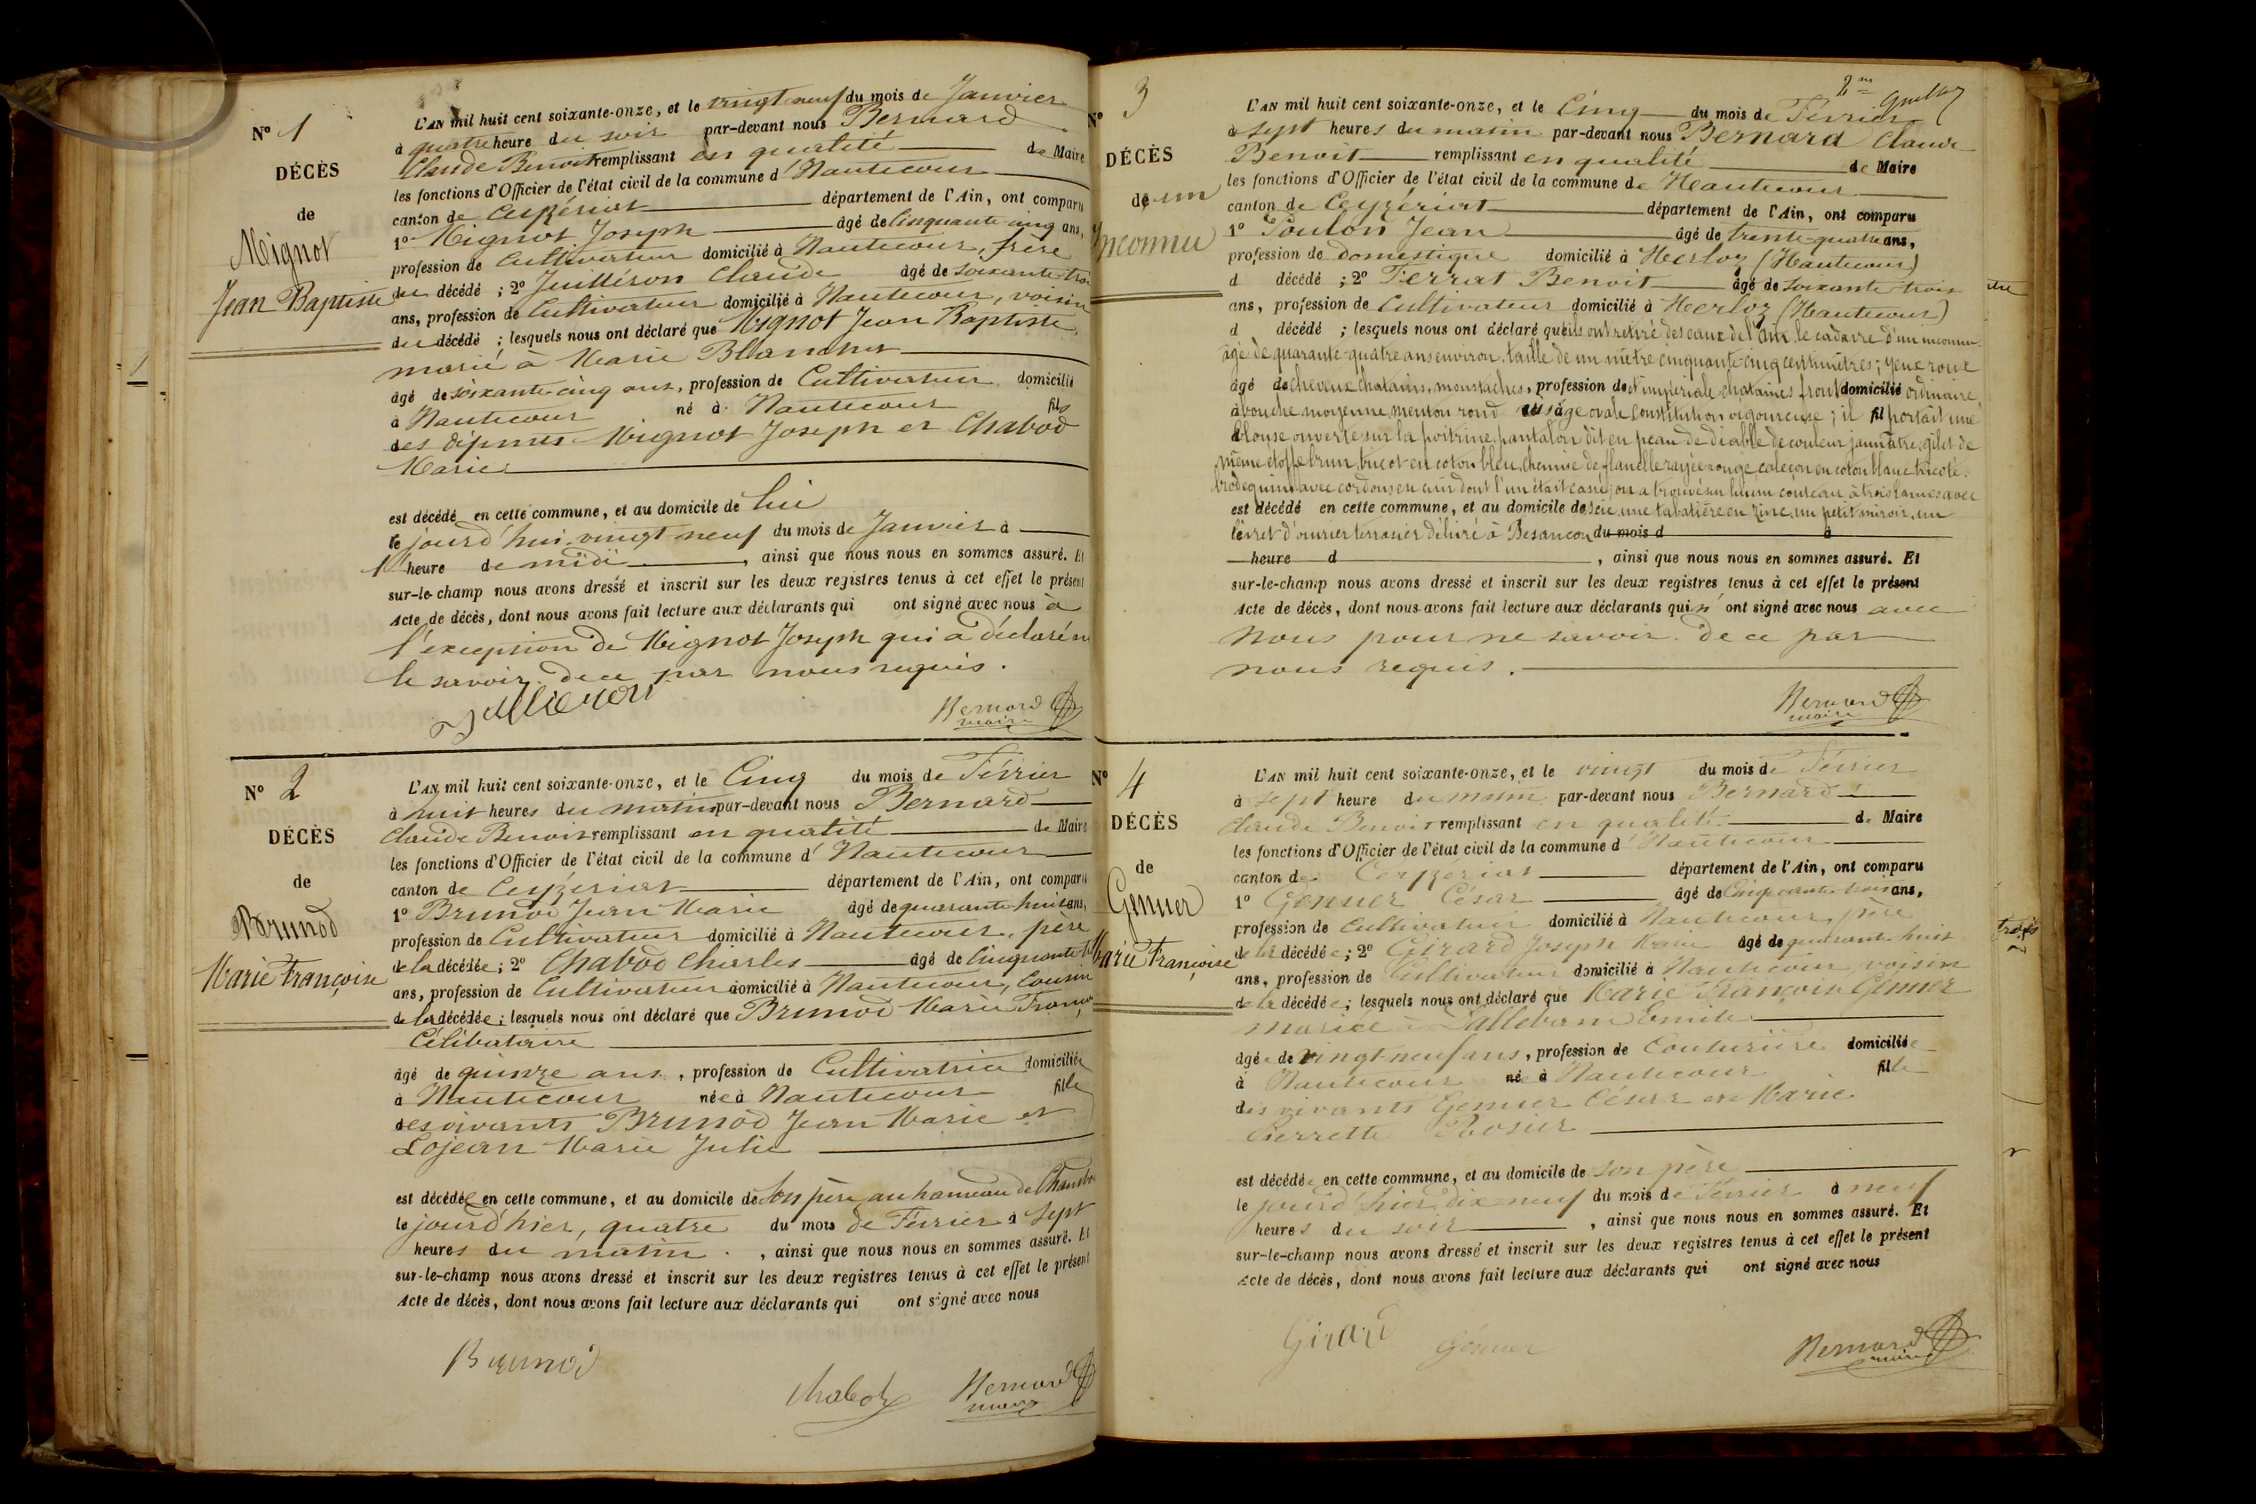 Nº 1
DÉCÈS
de
Mignot
Jean Baptiste
L'AN mil huit cent soixante-onze, et le vingt neuf du mois de Janvier
à quatre heure du soir par-devant nous Bernard
Claude Benoit remplissant en qualité de Maire
les fonctions d'Officier de l'état civil de la commune d'Hautecour
canton de Ceyzériat département de l'Ain, ont comparu
1º Mignot Joseph âgé de Cinquante cinq ans,
profession de Cultivateur domicilié à Hautecour, frère
du décédé ; 2º Juilléron Claude âgé de soixante trois
ans, profession de Cultivateur domicilié à Hautecour, voisin
du décédé ; lesquels nous ont déclaré que Mignot Jean Baptiste,
marié à Marie Blanchet
âgé de soixante cinq ans, profession de Cultivateur domicilié
à Hautecour né à Hautecour fils
des défunts Mignot Joseph et Chabod
Marie
est décédé en cette commune, et au domicile de lui
le jourd'hui vingt neuf du mois de Janvier à
1 heure de midi, ainsi que nous nous en sommes assuré. Et
sur-le-champ nous avons dressé et inscrit sur les deux registres tenus à cet effet le présent
Acte de décès, dont nous avons fait lecture aux déclarants qui ont signé avec nous à
l'exception de Mignot Joseph qui a déclaré ne
le savoir. de ce par nous requis.
Juilleron
Bernard
maire
Nº 2
DÉCÈS
de
Brunod
Marie Françoise
L'AN mil huit cent soixante-onze, et le Cinq du mois de Février
à huit heures du matin par-devant nous Bernard
Claude Benoit remplissant en qualité de Maire
les fonctions d'Officier de l'état civil de la commune d'Hautecour
canton de Ceyzériat département de l'Ain, ont comparu
1º Brunod Jean Marie âgé de quarante huit ans,
profession de Cultivateur domicilié à Hautecour, père
de la décédée ; 2º Chabod Charles âgé de Cinquante
ans, profession de Cultivateur domicilié à Hautecour, Cousin
de la décédée ; lesquels nous ont déclaré que Brunod Marie Franço
Célibataire
âgé de quinze ans, profession de Cultivatrice domiciliée
à Hautecour née à Hautecour fille
des vivants Brunod Jean Marie et
Lojean Marie Julie
est décédée en cette commune, et au domicile de son père au hameau de
le jourd'hier, quatre du mois de Février à sept
heures du matin, ainsi que nous nous en sommes assuré. Et
sur-le-champ nous avons dressé et inscrit sur les deux registres tenus à cet effet le présent
Acte de décès, dont nous avons fait lecture aux déclarants qui ont signé avec nous
Brunod
Chabod
Bernard
maire
2me
Nº 3
DÉCÈS
de un
Inconnu
L'AN mil huit cent soixante-onze, et le Cinq du mois de Février
à sept heures du matin par-devant nous Bernard Claude
Benoit remplissant en qualité de Maire
les fonctions d'Officier de l'état civil de la commune de Hautecour
canton de Ceyzériat département de l'Ain, ont comparu
1º Poulon Jean âgé de trente quatre ans,
profession de domestique domicilié à Merloz (Hautecour)
d décédé ; 2º Ferrat Benoit âgé de soixante trois
ans, profession de Cultivateur domicilié à Merloz (Hautecour)
d décédé ; lesquels nous ont déclaré qu'ils ont retiré des eaux de l'Ain le cadavre d'un inconnu
âgé de quarante quatre ans environ, taille de un mètre cinquante cinq centimètres ; yeux roux
âgé de cheveux chatains, moustaches, profession de et impériale chataines front domicilié ordinaire,
à bouche moyenne, menton rond visage ovale constitution vigoureuse ; il fil portait une
blouse ouverte sur la poitrine, pantalon dit en peau de diable de couleur jaunâtre, gilet de
même étoffe brun, tricot en coton bleu, chemise de flanelle rayée rouge, caleçon en coton blanc tricoté.
brodequins avec cordons en cuir dont l'un était cassé ; on a trouvé sur lui un couteau à trois lames avec
est décédé en cette commune, et au domicile de scie, une tabatière en zinc, un petit miroir, un
livret d'ouvrier terrassier délivré à Besançon du mois d à
heure d, ainsi que nous nous en sommes assuré. Et
sur-le-champ nous avons dressé et inscrit sur les deux registres tenus à cet effet le présent
Acte de décès, dont nous avons fait lecture aux déclarants qui n'ont signé avec nous avec
nous pour ne savoir. de ce par
nous requis.
Bernard
maire
Nº 4
DÉCÈS
de
Genuer
Marie Françoise
L'AN mil huit cent soixante-onze, et le vingt du mois de Février
à sept heure du matin par-devant nous Bernard
Claude Benoit remplissant en qualité de Maire
les fonctions d'Officier de l'état civil de la commune d'Hautecour
canton de Ceyzériat département de l'Ain, ont comparu
1º Genuer César âgé de Cinquante trois ans,
profession de Cultivateur domicilié à Hautecour, père
de la décédée ; 2º Girard Joseph Marie âgé de quarante huit
ans, profession de Cultivateur domicilié à Hautecour voisin
de la décédée ; lesquels nous ont déclaré que Marie Françoise Genuer
mariée à
âgée de vingt-neuf ans, profession de Couturière domiciliée
à Hautecour né à Hautecour fille
des vivants Genuer César et Marie
Pierrette Rosier
est décédée en cette commune, et au domicile de son père
le jourd'hier dix neuf du mois de Février à neuf
heures du soir, ainsi que nous nous en sommes assuré. Et
sur-le-champ nous avons dressé et inscrit sur les deux registres tenus à cet effet le présent
Acte de décès, dont nous avons fait lecture aux déclarants qui ont signé avec nous
Girard
Génuer
Bernard
maire